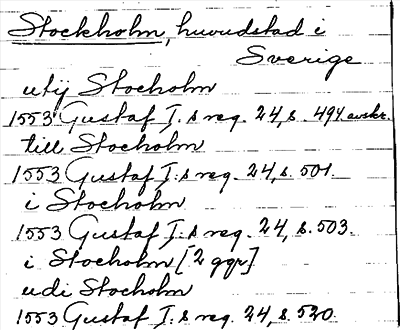 Stockholm, huvudstad i
Sverige
utij Stocholm
1553 Gustaf I:s reg. 24, s. 494 avskr.
till Stocholm
1553 Gustaf I:s reg. 24, s. 501.
i Stocholm
1553 Gustaf I:s reg. 24, s. 503.
i Stocholm [2 ggr]
udi Stocholm
1553 Gustaf I:s reg. 24, s. 520.